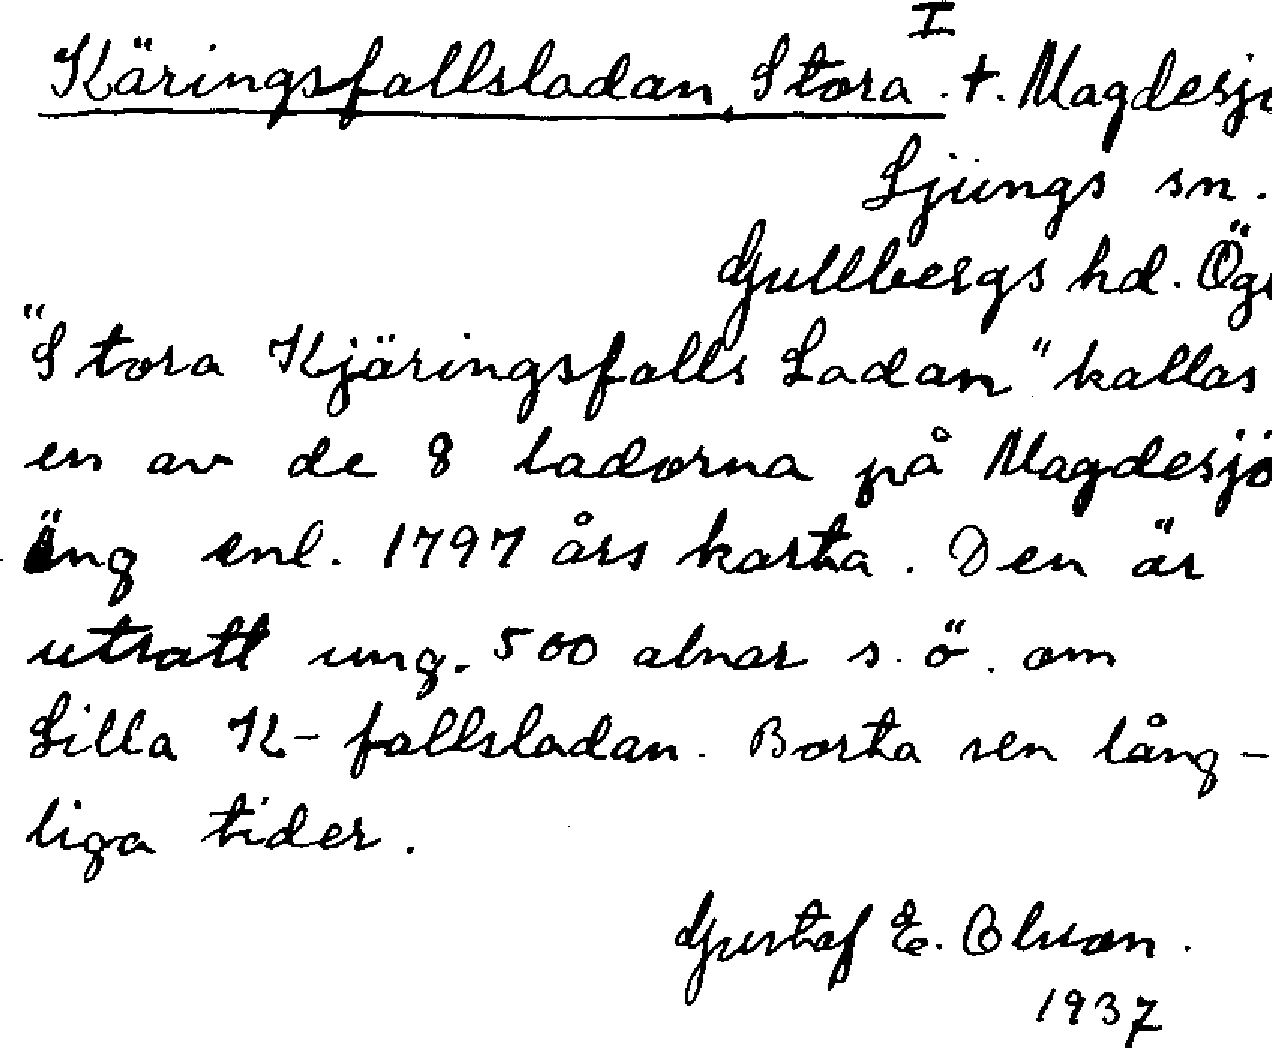 I
Käringsfallsladan, Stora. t. Magdesjö
Ljungs sn.
Gullbergs hd. Ögl
"Stora Kjäringsfalls Ladan" kallas
en av de 8 ladorna på Magdesjö
äng enl. 1797 års karta. Den är
utsatt ung. 500 alnar s. ö. om
Lilla K-fallsladan. Borta sen lång-
liga tider.
Gustaf E. Olsson.
1937